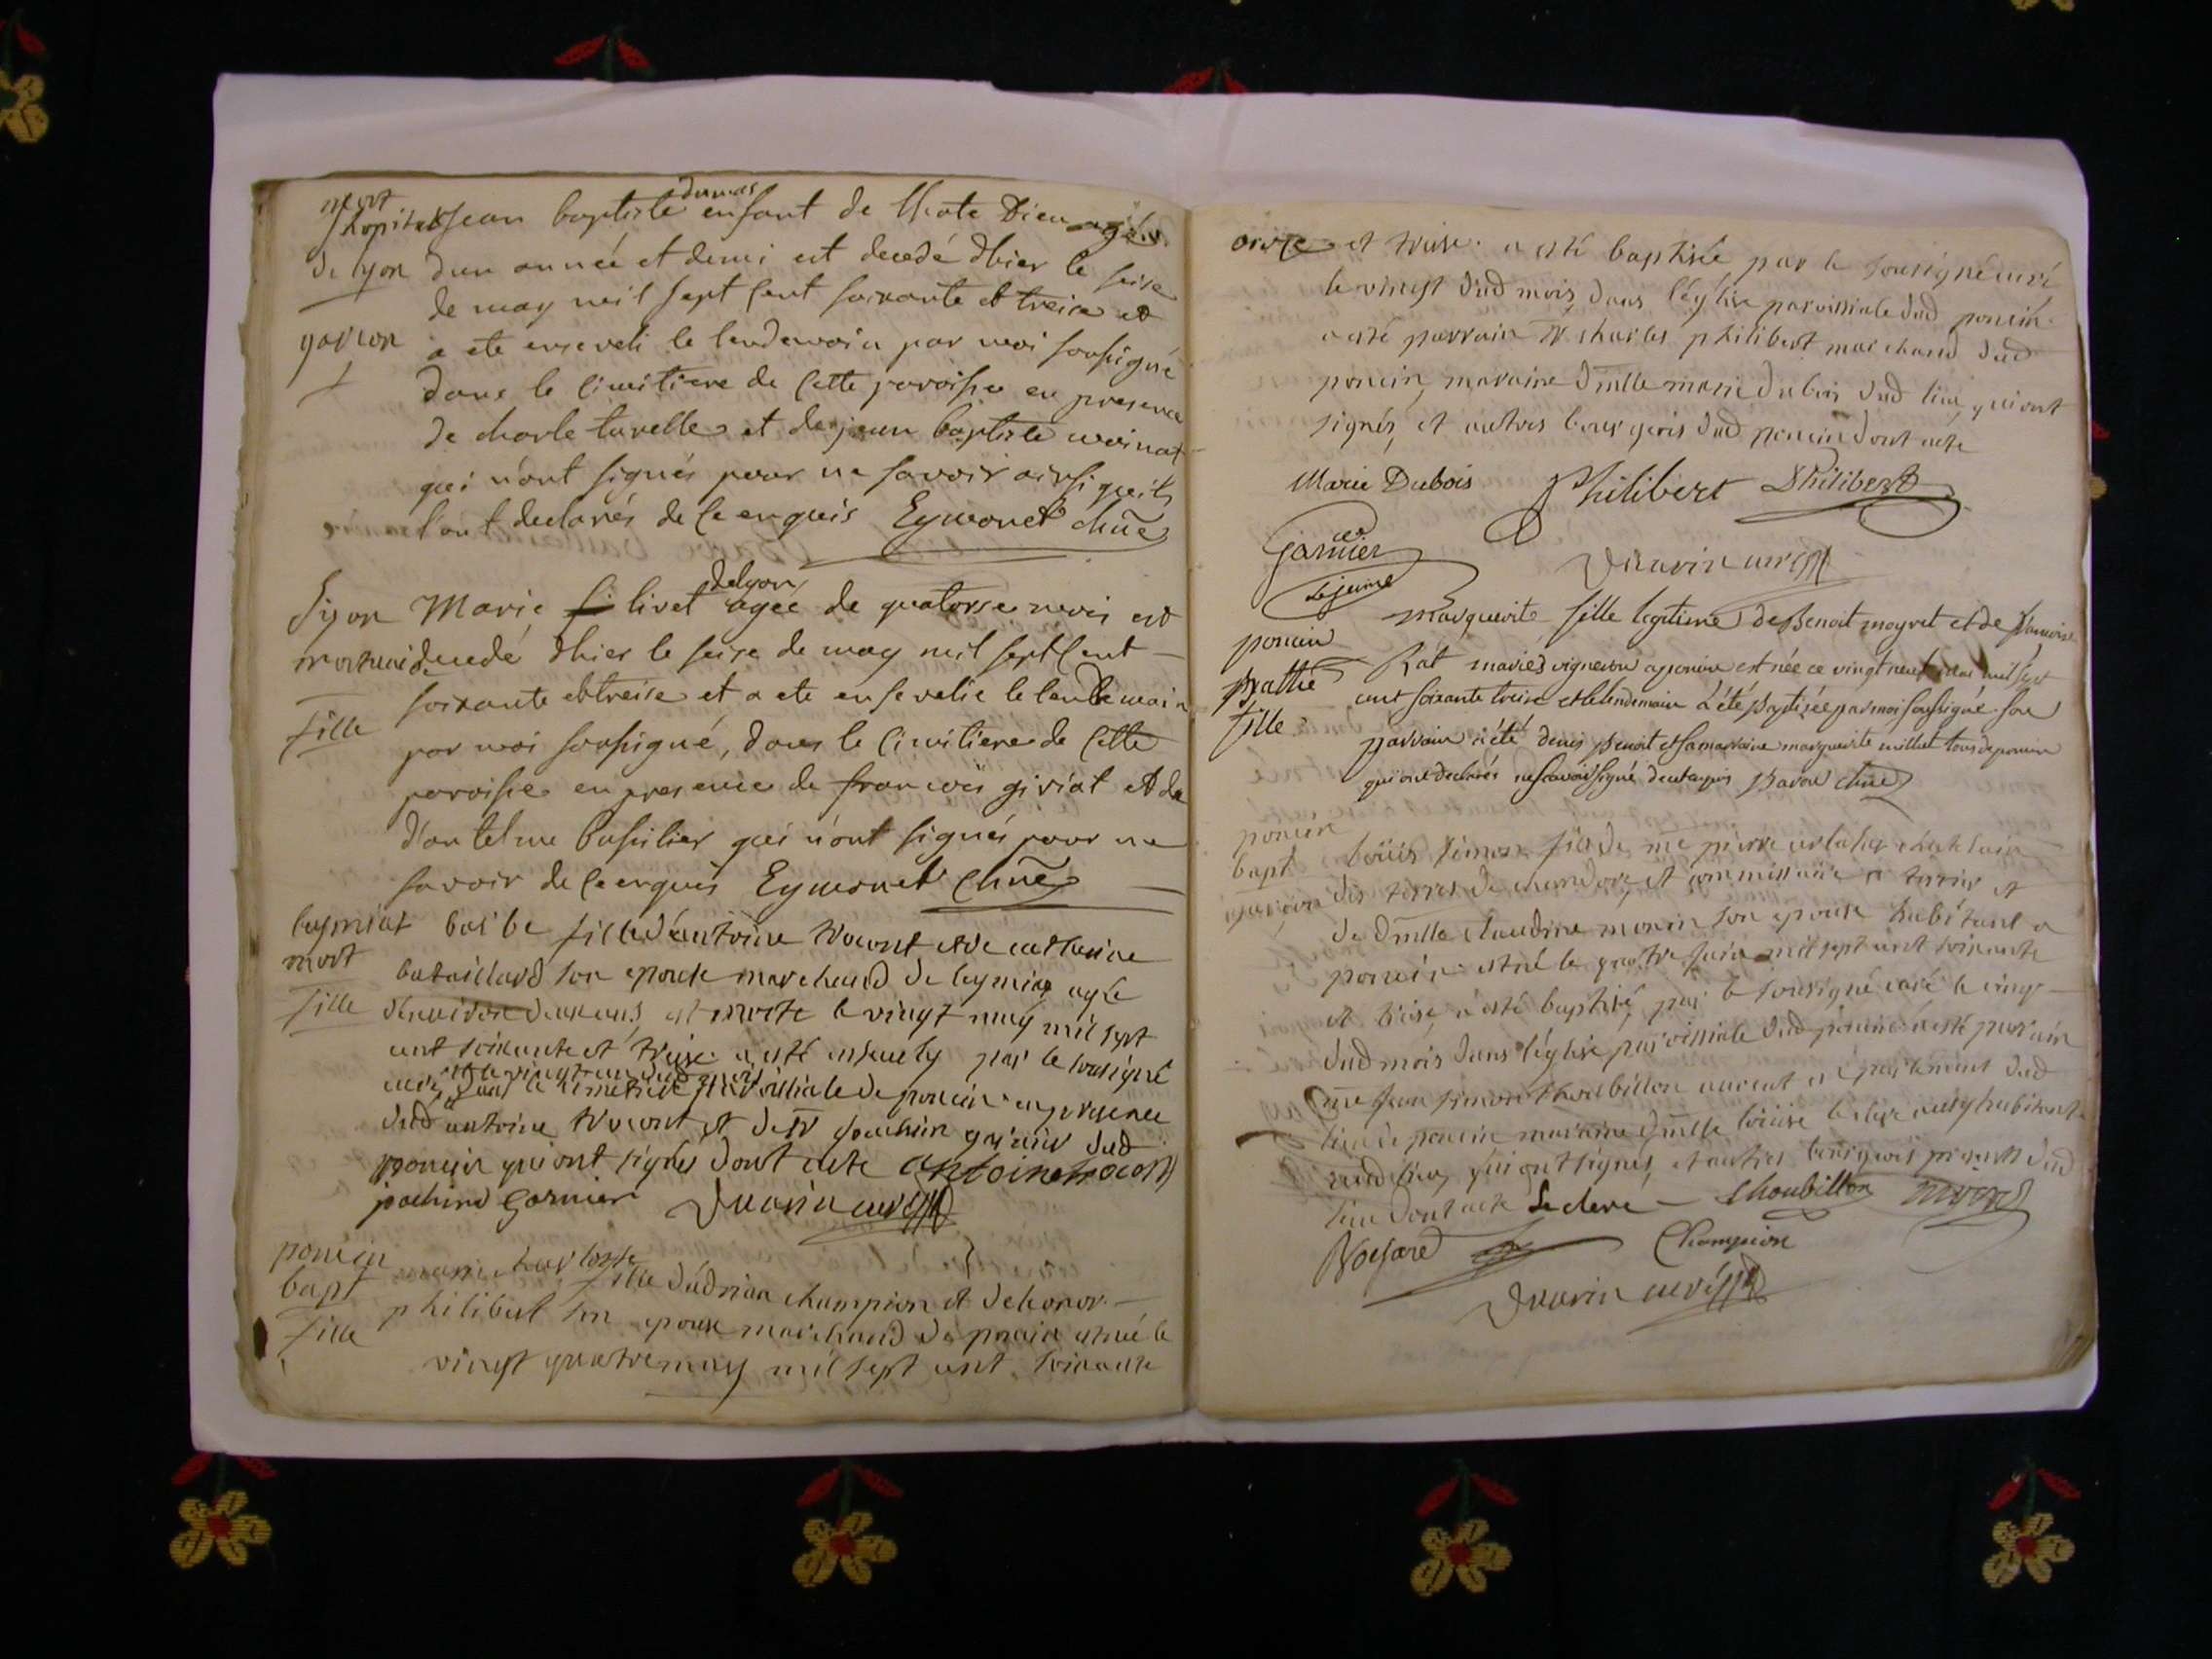 mort
hopital Jean baptiste dumas enfant de lhote Dieu agée
de lyon dun année et demi est decedé dhier le seise
de may mil sept sent soixante et treise et
garcon a ete enseveli le lendemain par moi soussigné
dans le cimitiere de cette paroisse en presence
de charle tavelle et de jean baptiste
qui n'ont signés pour ne savoir ainsi quils
l'ont declarés de ce enquis Eymonet
Lyon Marie livet de lyon agée de quatorse mois est
mort decedé dhier le seise de may mil sept sent
soixante et treise et a ete ensevelie le lendemain
fille
par moi soussigné, dans le cimitiere de cette
paroisse en presence de francois giriat et de
d'antelme qui n'ont signés pour ne
savoir de ce enquis Eymonet
leymiat barbe fille d'antoine et de catherine
mort
bataillard son epouse marchand de leymiat agée
fille denviron deux ans, est morte le vingt may mil sept
cent soixante et treise a esté par le soussigné
curé et le vingt un dud mois dans le cimetiere parroissiale de poncin en presence
dud antoine et de joachin garnier dud
poncin qui ont signés dont acte antoine
joachind Garnier curé
poncin
bapt marie charlotte fille d'adrian champion et de honor
fille philibert son epouse marchand de poncin est née le
vingt quatre may mil sept cent soixante
et treise a esté baptisée par le sousigné curé
le vingt dud mois, dans l'église paroissiale dud poncin
a esté parrain Sr charles philibert marchand dud
poncin, maraine dmlle marie dubois dud lieu, qui ont
signés, et autres bourgeois dud poncin dont acte
Marie Dubois Philibert Philibert
Garnier
Lejeune curé
poncin Marguerite fille legitime de Benoit mayret et de
Rat mariés vignerons a poncin est née ce vingt neuf mai mil sept
fille cent soixante treise et le lendemain a été baptisée par moi soussigné son
parrain a été denis benoit et sa marraine marguerite millet tous de poncin
qui ont declarés ne scavoir signé
poncin
bapt loüis simon fils de me pierre chatelain
garçon des terres de et commissaire a terrier et
de dmlle claudine morin son epouse habitant a
poncin est né le quatre juin mil sept cent soixante
et treise, a esté baptisé, par le sousigné curé le cinq
dud mois dans l'église paroissiale dud poncin a esté parrain
me jean simon avocat en parlement dud
lieu de poncin maraine dmlle loüise habitant
aud lieu, qui ont signés, et autres bourgeois presents dud
lieu dont acte Leclerc
Champion
curé